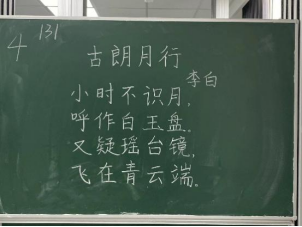 4 131
古朗月行
李白
小时不识月,
呼作白玉盘.
又疑瑶台镜,
飞在青云端。